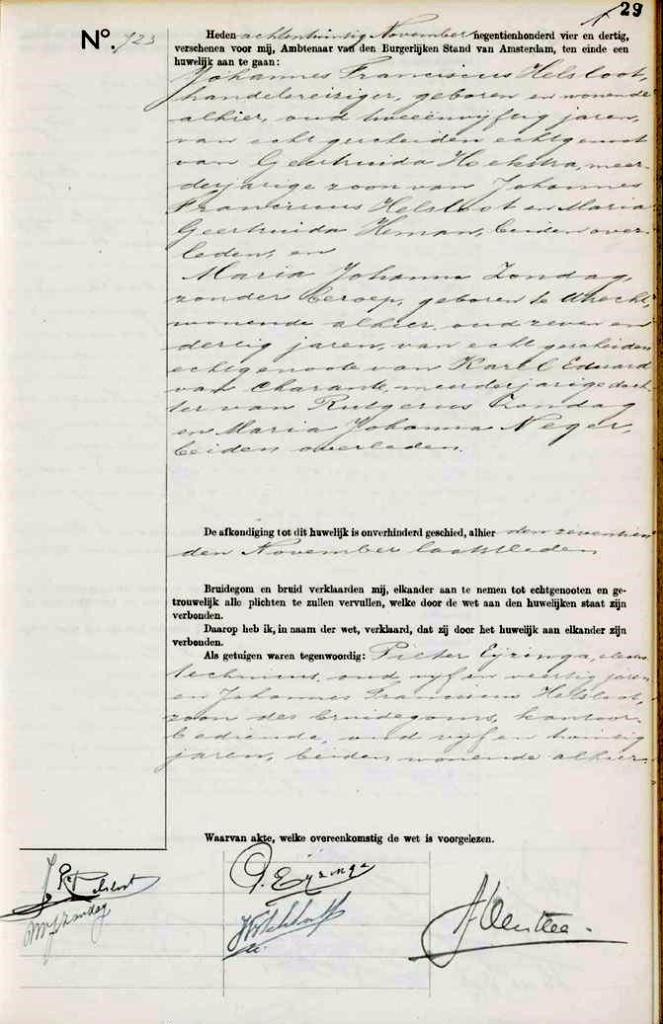 29
No. 723
Heden achtentwintig November negentienhonderd vier en dertig,
verschenen voor mij, Ambtenaar van den Burgerlijken Stand van Amsterdam, ten einde een
huwelijk aan te gaan:
Johannes Franciscus Helsloot,
handelsreiziger, geboren en wonende
alhier, oud tweeënvijftig jaren,
van echt gescheiden echtgenoot
van Geertruida Hoekstra, meer-
derjarige zoon van Johannes
Franciscus Helsloot en Maria
Geertruida Heman, beiden over-
leden, en
Maria Johanna Zondag,
zonder beroep, geboren te Utrecht,
wonende alhier, oud zeven en
dertig jaren, van echt gescheiden
echtgenoote van Karel Eduard
van Charante, meerderjarige doch-
ter van Rutgerus Zondag
en Maria Johanna Neger,
beiden overleden.
De afkondiging tot dit huwelijk is onverhinderd geschied, alhier den zeventien
den November laatstleden
Bruidegom en bruid verklaarden mij, elkander aan te nemen tot echtgenooten en ge-
trouwelijk alle plichten te zullen vervullen, welke door de wet aan den huwelijken staat zijn
verbonden.
Daarop heb ik, in naam der wet, verklaard, dat zij door het huwelijk aan elkander zijn
verbonden.
Als getuigen waren tegenwoordig: Pieter Eyzinga, electro
technicus, oud vijf en veertig jaren
en Johannes Franciscus Helsloot,
zoon des bruidegoms, kantoor-
bediende, oud vijf en twintig
jaren, beiden wonende alhier.
Waarvan akte, welke overeenkomstig de wet is voorgelezen.
Helsloot
P. Eyzinga
MJ Zondag